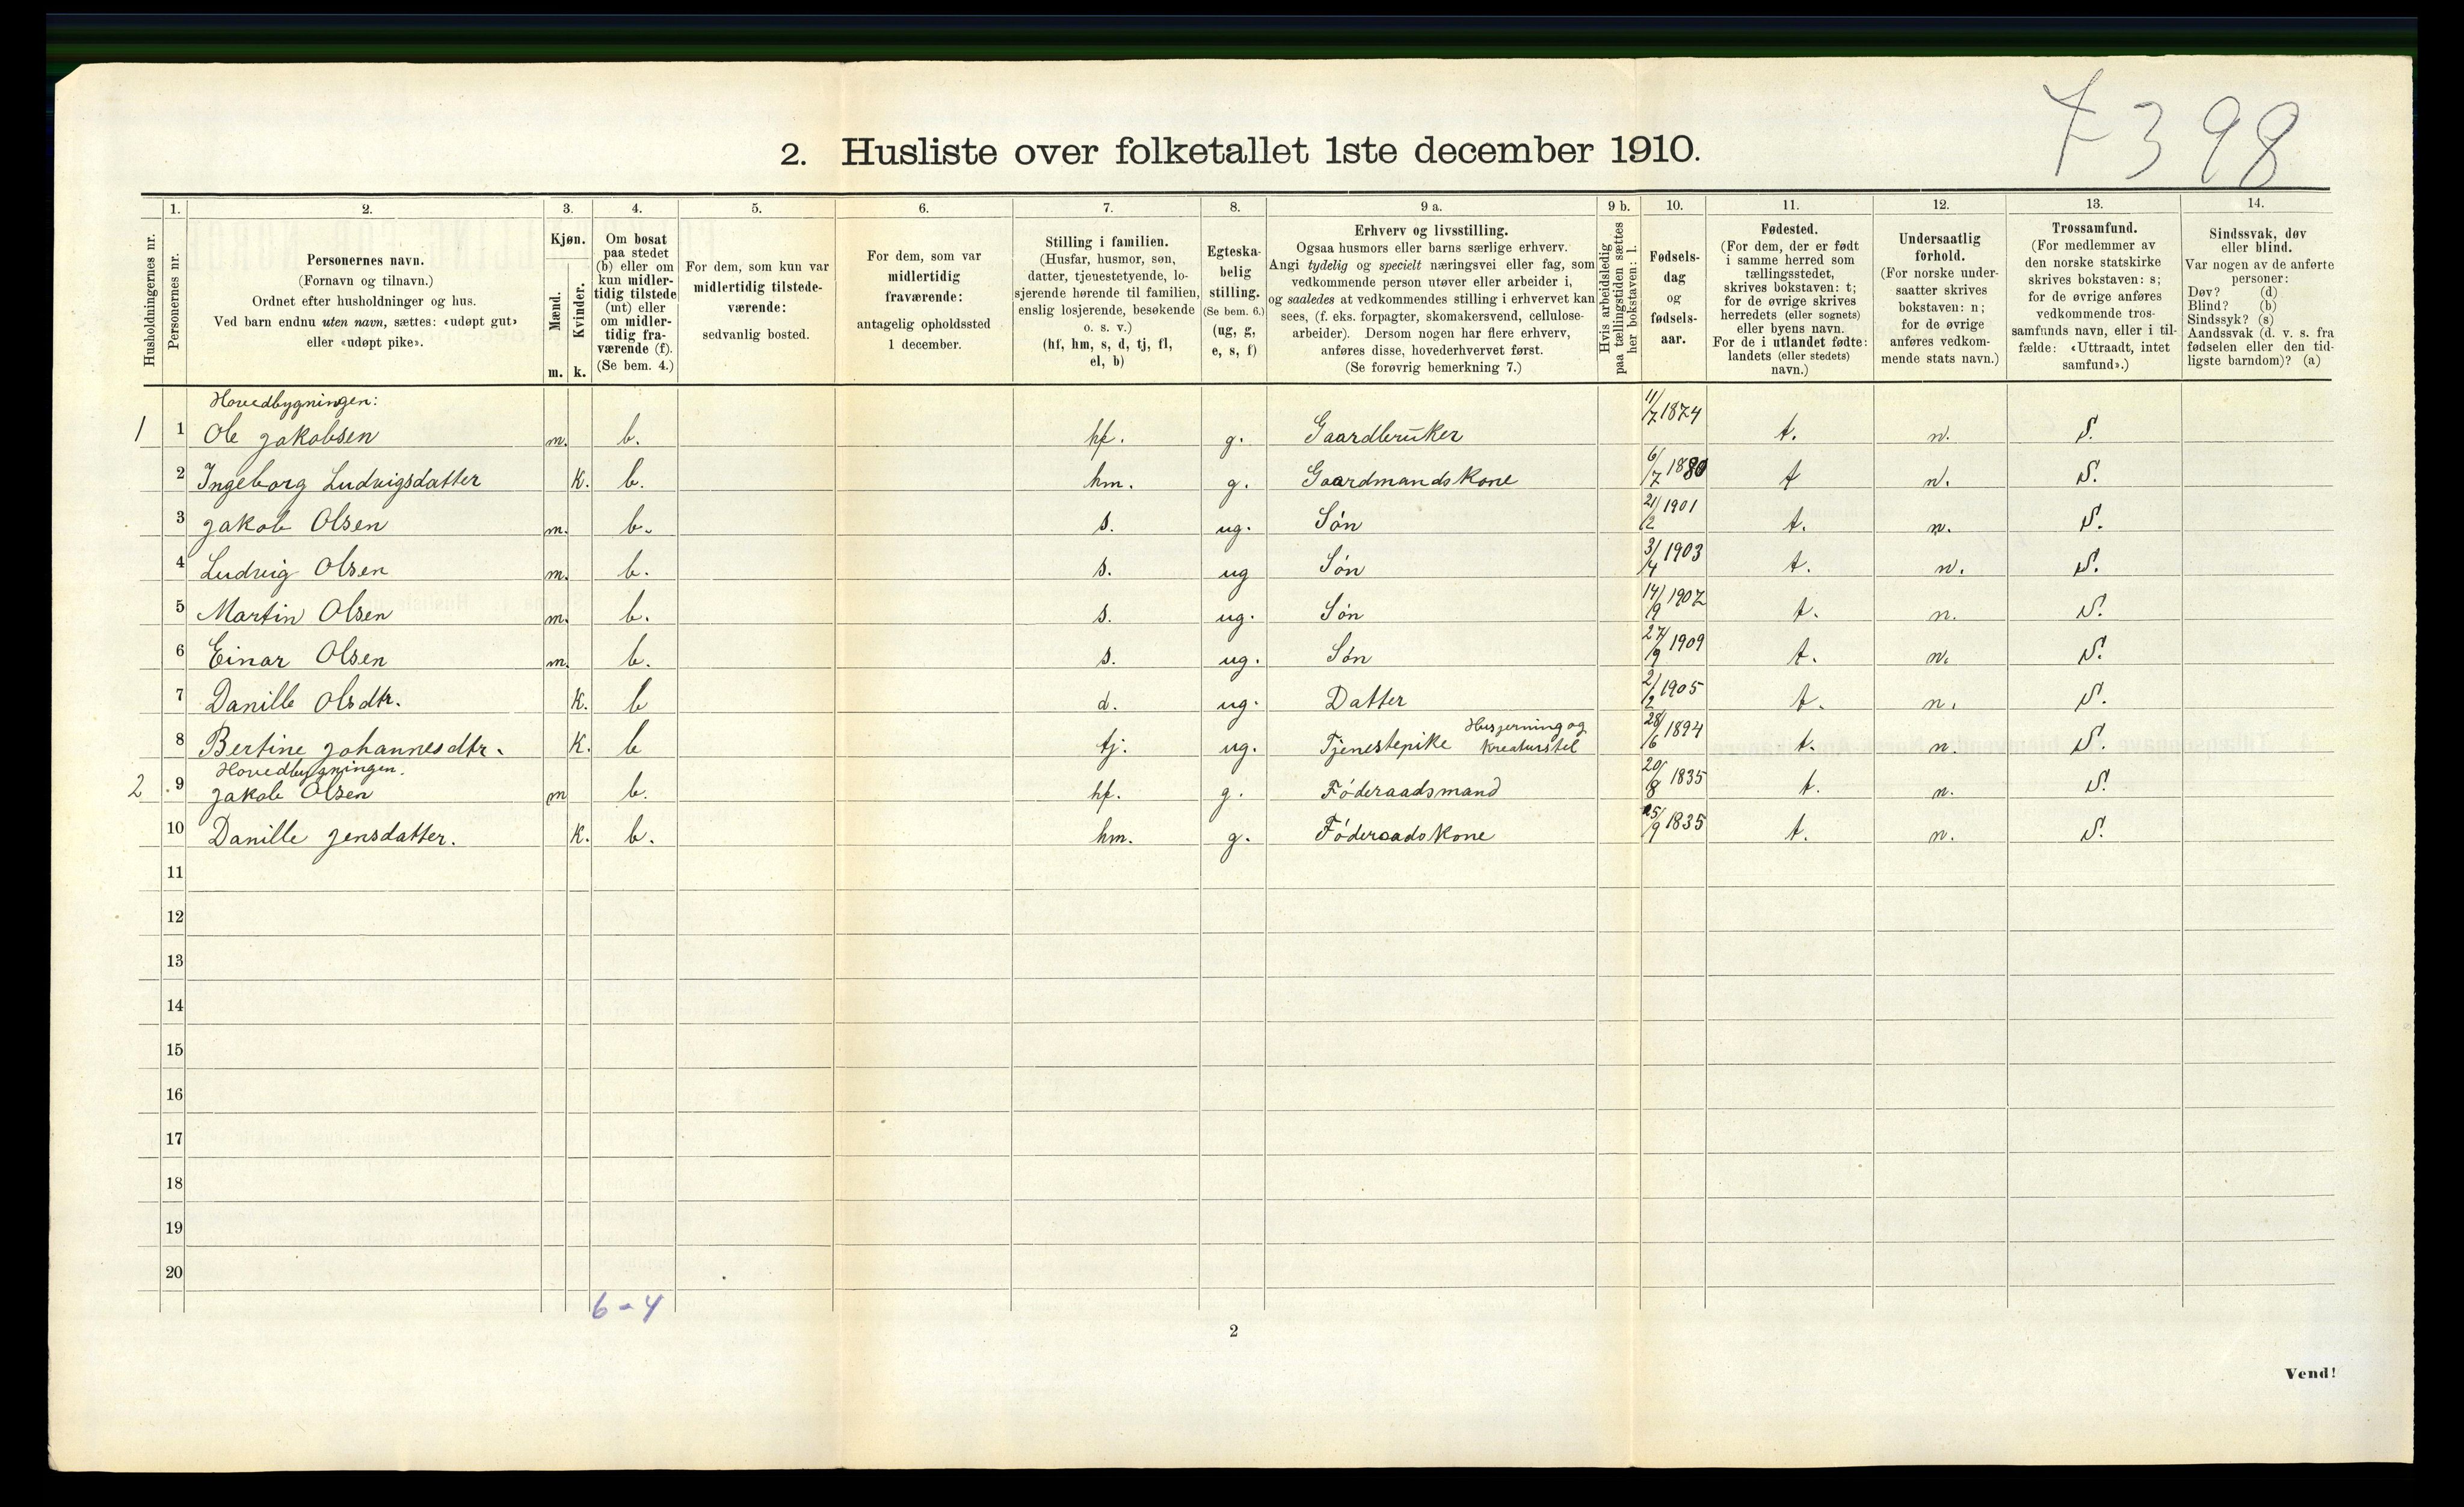 7398
2. Husliste over folketallet 1ste december 1910.
1. 2. 3. 4. 5. 6. 7. 8. 9 a. 9 b. 10. 11. 12. 13. 14.
Husholdningernes nr.
Personernes nr.
Personernes navn.
(Fornavn og tilnavn.)
Ordnet efter husholdninger og hus.
Ved barn endnu uten navn, sættes: «udøpt gut»
eller «udøpt pike».
Kjøn.
Mænd.
Kvinder.
m. k.
Om bosat
paa stedet
(b) eller om
kun midler-
tidig tilstede
(mt) eller
om midler-
tidig fra-
værende (f).
(Se bem. 4.)
For dem, som kun var
midlertidig tilstede-
værende:
sedvanlig bosted.
For dem, som var
midlertidig
fraværende:
antagelig opholdssted
1 december.
Stilling i familien.
(Husfar, husmor, søn,
datter, tjenestetyende, lo-
sjerende hørende til familien,
enslig losjerende, besøkende
o. s. v.)
(hf, hm, s, d, tj, fl,
el, b)
Egteska-
belig
stilling.
(Se bem. 6.)
(ug, g,
e, s, f)
Erhverv og livsstilling.
Ogsaa husmors eller barns særlige erhverv.
Angi tydelig og specielt næringsvei eller fag, som
vedkommende person utøver eller arbeider i,
og saaledes at vedkommendes stilling i erhvervet kan
sees, (f. eks. forpagter, skomakersvend, cellulose-
arbeider). Dersom nogen har flere erhverv,
anføres disse, hovederhvervet først.
(Se forøvrig bemerkning 7.)
Hvis arbeidsledig
paa tællingstiden sættes
her bokstaven: l.
Fødsels-
dag
og
fødsels-
aar.
Fødested.
(For dem, der er født
i samme herred som
tællingsstedet,
skrives bokstaven: t;
for de øvrige skrives
herredets (eller sognets)
eller byens navn.
For de i utlandet fødte:
landets (eller stedets)
navn.)
Undersaatlig
forhold.
(For norske under-
saatter skrives
bokstaven: n;
for de øvrige
anføres vedkom-
mende stats navn.)
Trossamfund.
(For medlemmer av
den norske statskirke
skrives bokstaven: s;
for de øvrige anføres
vedkommende tros-
samfunds navn, eller i til-
fælde: «Uttraadt, intet
samfund».)
Sindssvak, døv
eller blind.
Var nogen av de anførte
personer:
Døv? (d)
Blind? (b)
Sindssyk? (s)
Aandssvak (d. v. s. fra
fødselen eller den tid-
ligste barndom)? (a)
Hovedbygningen:
1 1 Ole Jakobsen m. b. hf. g. Gaardbruker 11/7 1874 t. n. S.
2 Ingeborg Ludvigsdatter K. b. hm. g. Gaardmandskone 6/7 1880 t n. S.
3 Jakob Olsen m. b. s. ug. Søn 21/12 1901 t. n. S.
4 Ludvig Olsen m. b. s. ug Søn 3/4 1903 t. n. S.
5 Martin Olsen m. b. s. ug. Søn 14/9 1907 t. n. S.
6 Einar Olsen m. b. s. ug. Søn 27/9 1909 t. n. S.
7 Danille Olsdtr. K. b d. ug. Datter 2/2 1905 t. n. S.
8 Bertine Johannesdtr. K. b tj. ug. Tjenestepike Husgerning og Kreaturstel 28/6 1894 t. n. S.
Hovedbygningen.
2 9 Jakob Olsen m b. hf. g. Føderaadsmand 20/8 1835 t. n. S.
10 Danille Jensdatter. K. b. hm. g. Føderaadskone 25/9 1835 t. n. S.
11
12
13
14
15
16
17
18
19
20
6-4
2
Vend!